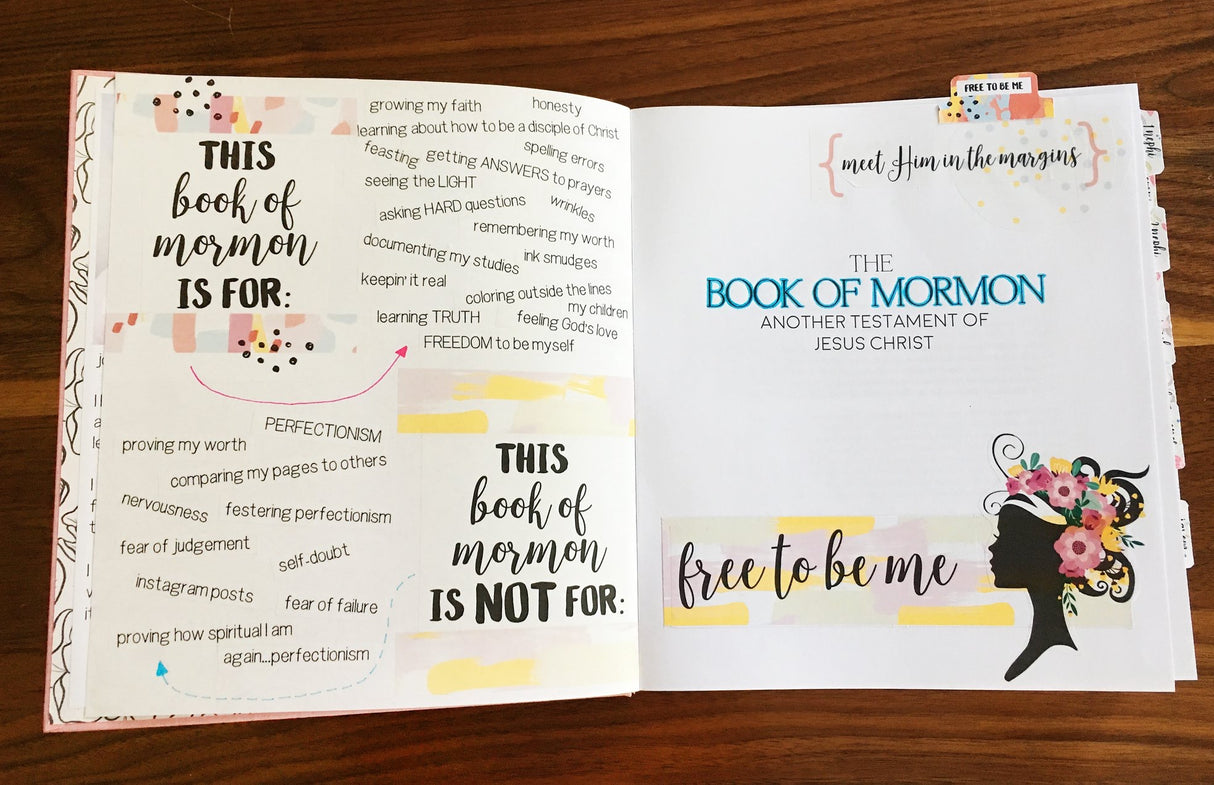 THIS
book of
mormon
IS FOR:
growing my faith
honesty
learning about how to be a disciple of Christ
spelling errors
feasting
getting ANSWERS to prayers
seeing the LIGHT
wrinkles
asking HARD questions
remembering my worth
documenting my studies
ink smudges
keepin' it real
coloring outside the lines
my children
learning TRUTH
feeling God's love
FREEDOM to be myself
PERFECTIONISM
proving my worth
comparing my pages to others
nervousness
festering perfectionism
fear of judgement
self-doubt
instagram posts
fear of failure
proving how spiritual I am
again...perfectionism
THIS
book of
mormon
IS NOT FOR:
FREE TO BE ME
{ meet Him in the margins }
THE
BOOK OF MORMON
ANOTHER TESTAMENT OF
JESUS CHRIST
free to be me
1 Nephi